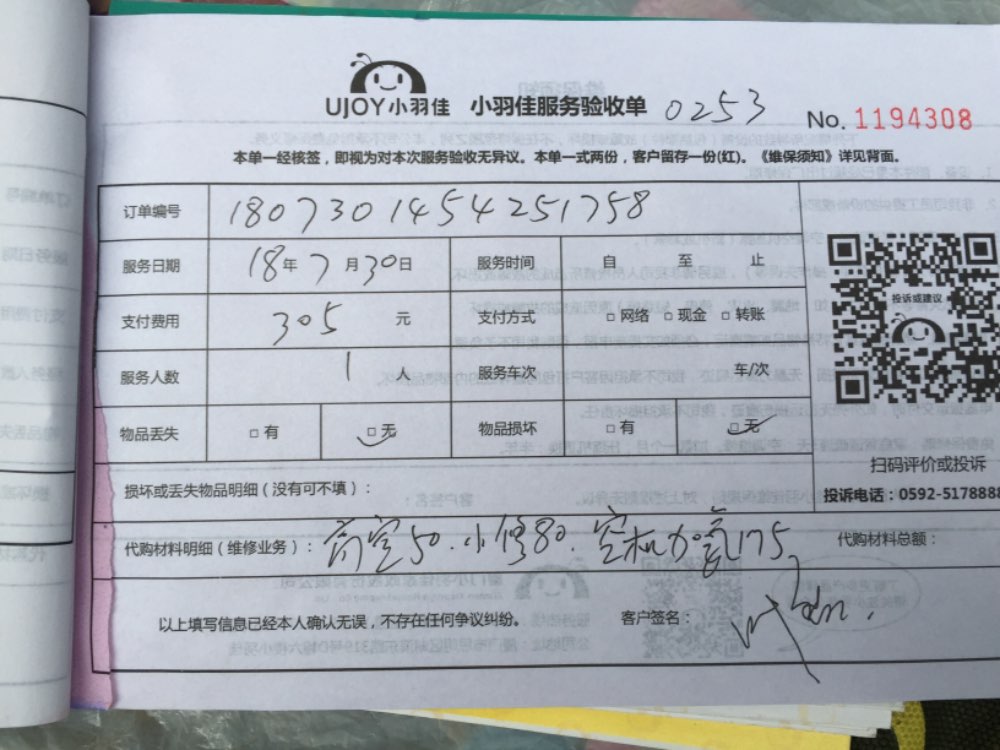 UJOY小羽佳 小羽佳服务验收单 0253 No. 1194308
本单一经核签，即视为对本次服务验收无异议。本单一式两份，客户留存一份(红)。《维保须知》详见背面。
订单编号 180730145454251758
服务日期 18年7月30日 服务时间 自 至 止
支付费用 305 元 支付方式 □网络 □现金 □转账
投诉或建议
服务人数 1 人 服务车次 车/次
物品丢失 □有 □无 物品损坏 □有 □无
扫码评价或投诉
损坏或丢失物品明细（没有可不填）：
投诉电话：0592-5178888
代购材料明细（维修业务）：高空50.小修80.空机加氟175 代购材料总额：
以上填写信息已经本人确认无误，不存在任何争议纠纷。 客户签名：